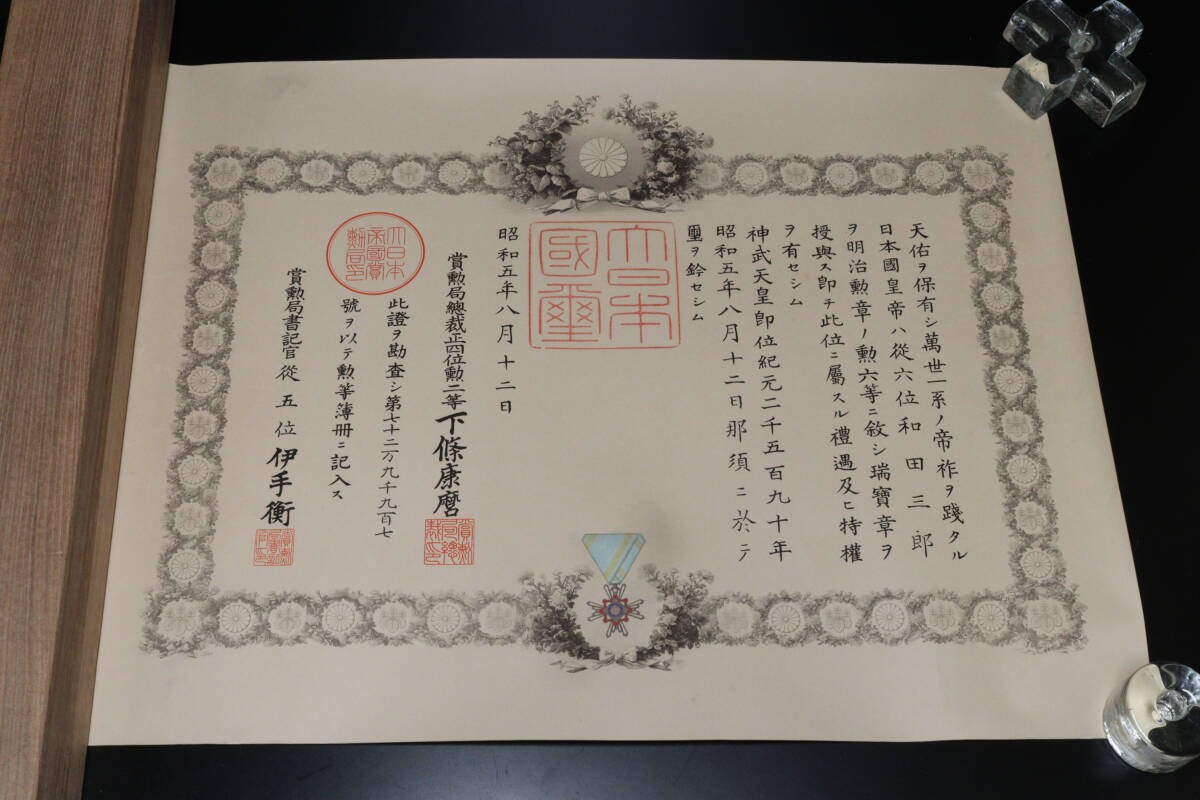 天佑ヲ保有シ萬世一系ノ帝祚ヲ踐タル
日本國皇帝ハ從六位和田三郎
ヲ明治勲章ノ勲六等ニ敘シ瑞寶章ヲ
授與ス即チ此位ニ屬スル禮遇及ヒ特權
ヲ有セシム
神武天皇即位紀元二千五百九十年
昭和五年八月十二日那須ニ於テ
璽ヲ鈐セシム
大日本
國璽
昭和五年八月十二日
賞勲局總裁正四位勲二等下條康麿
賞勲局總裁印
此證ヲ勘査シ第七十二万九千九百七
號ヲ以テ勲等簿冊ニ記入ス
大日本帝國賞勲局印
賞勲局書記官從五位伊手衡